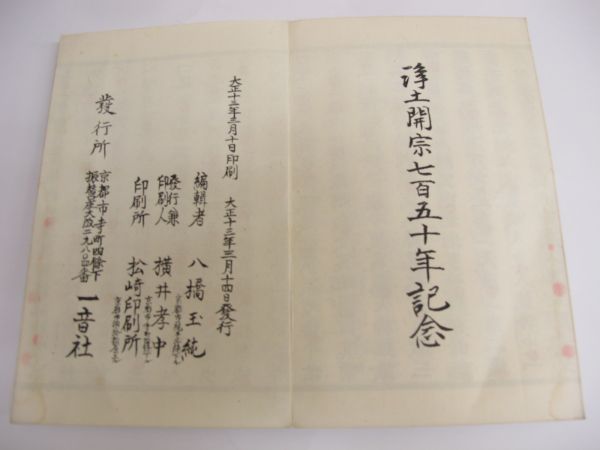 浄土開宗七百五十年記念
大正十三年三月十日印刷
大正十三年三月十四日發行
編輯者 八橋玉純
發行兼印刷人 横井孝中
印刷所 松崎印刷所
發行所
京都市寺町四條下
振替座大阪二九八〇四番
一音社